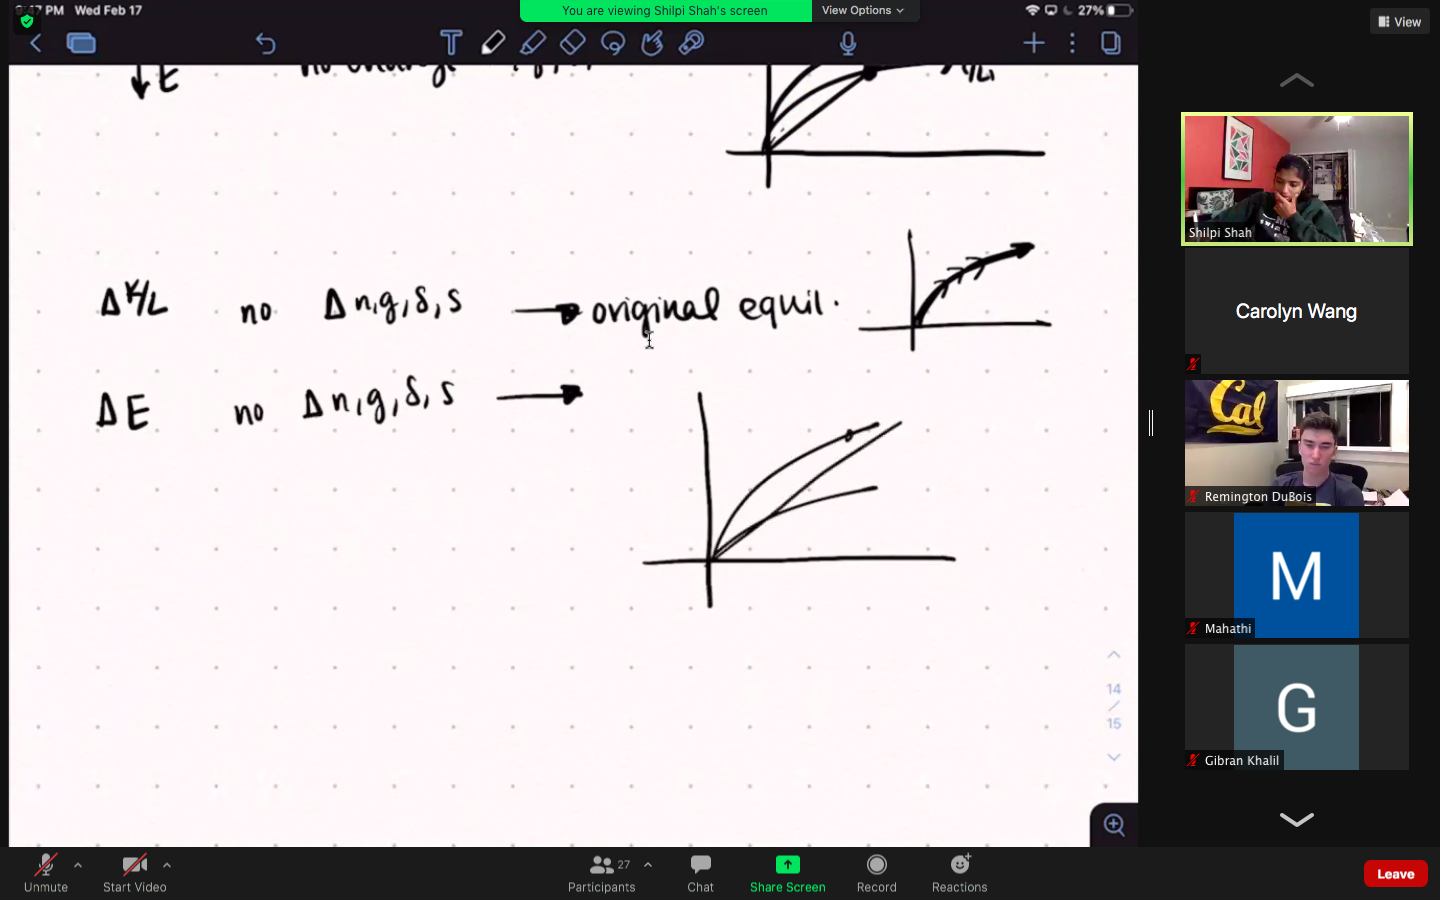 PM Wed Feb 17
You are viewing Shilpi Shah's screen
View Options
27%
View
↓E no change
Shilpi Shah
Δ K/L no Δ n,g,δ,s → original equil.
Carolyn Wang
ΔE no Δ n,g,δ,s →
Cal
Remington DuBois
M
Mahathi
14
/
15
G
Gibran Khalil
Unmute
Start Video
Participants
27
Chat
Share Screen
Record
Reactions
Leave